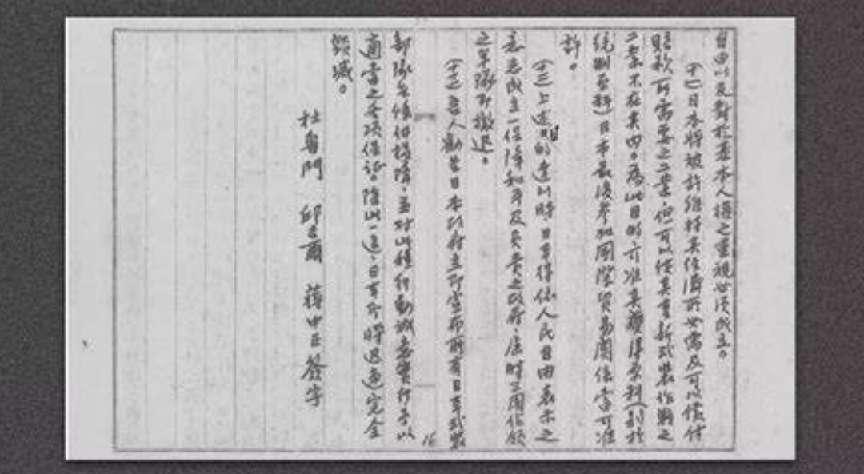 自由以及對於基本人權之重視必須成立。
(十一)日本將被許維持其經濟所必需及可以償付
賠款所需要之工業，但可以使其重新武裝作戰之
工業不在其內。為此目的，可准其獲得原料(別於
統制原料)日本最後參加國際貿易關係當可准
許。
(十二)上述目的達到時，日本得依人民自由表示之
意志成立一保障和平及負責之政府，屆時三國佔領
之軍隊即撤退。
(十三)吾人勸告日本政府立即宣布所有日本武裝
部隊無條件投降，並對此種行動誠意實行予以
適當之各項保證，除此一途，日本即將迅速完全
毀滅。
杜魯門 邱吉爾 蔣中正 簽字
16